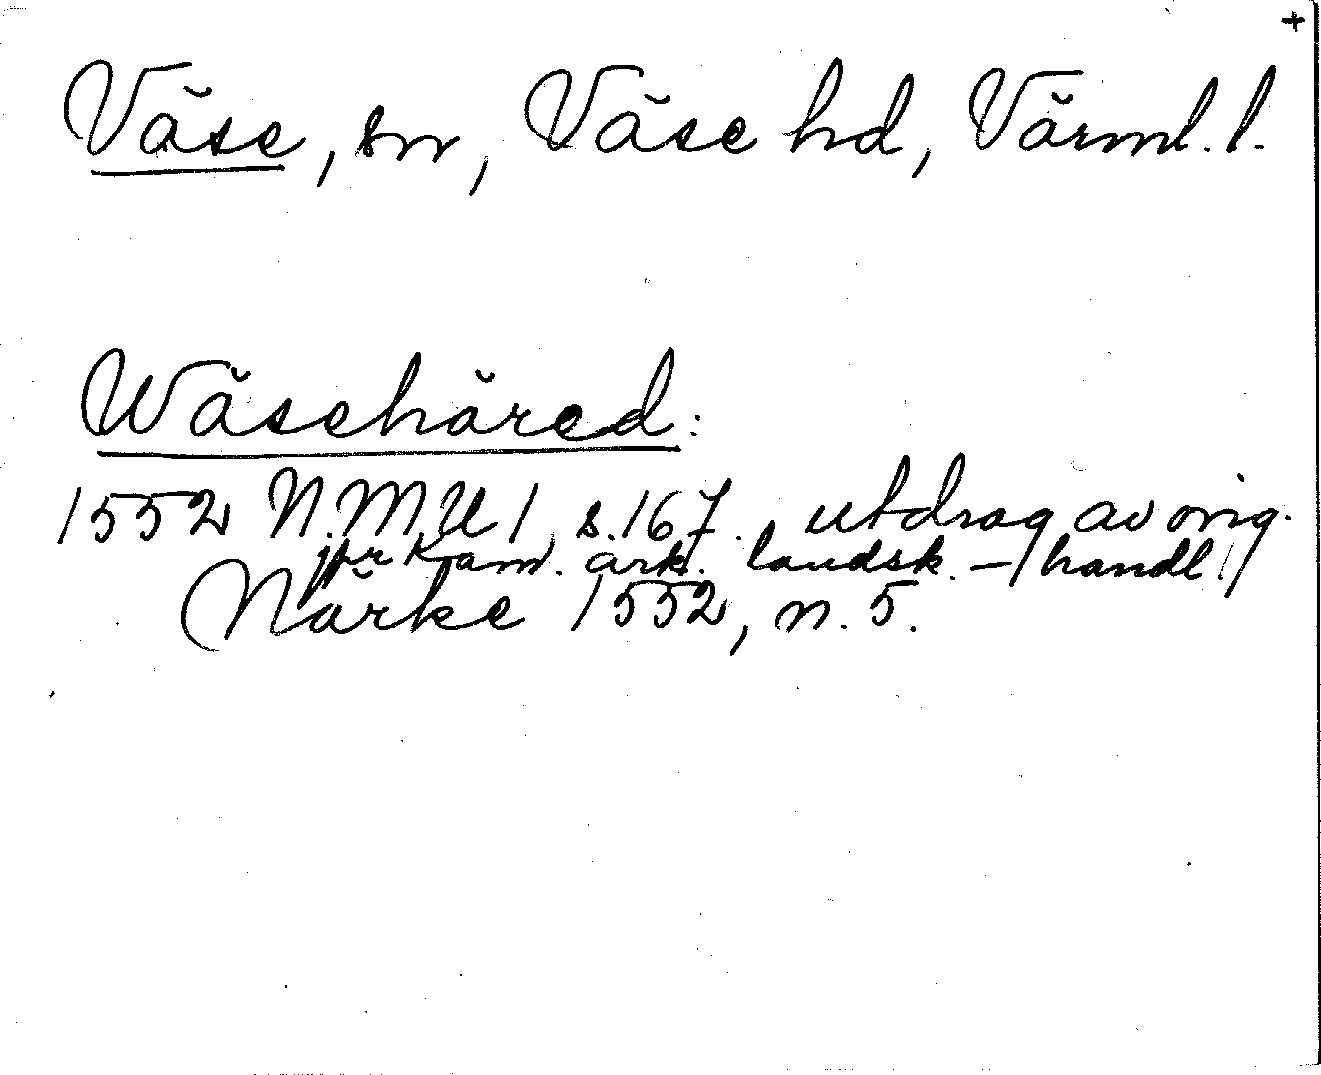 +
Väse, sn, Väse hd, Värml. l.
Wäsehäred:
1552 N.M.U 1, s.167., utdrag av orig.
jfr Kam. ark. landsk. – handl.
Närke 1552, n. 5.